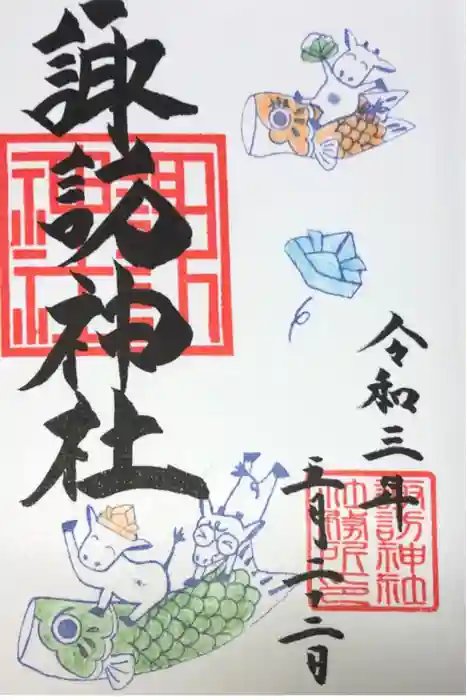 諏訪神社
諏訪
神社
令和三年
五月二十二日
諏訪神社
社務所印